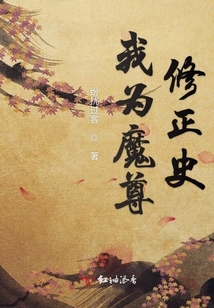 修正史
我为魔尊
纷扰过客 ◎ 著
红袖添香